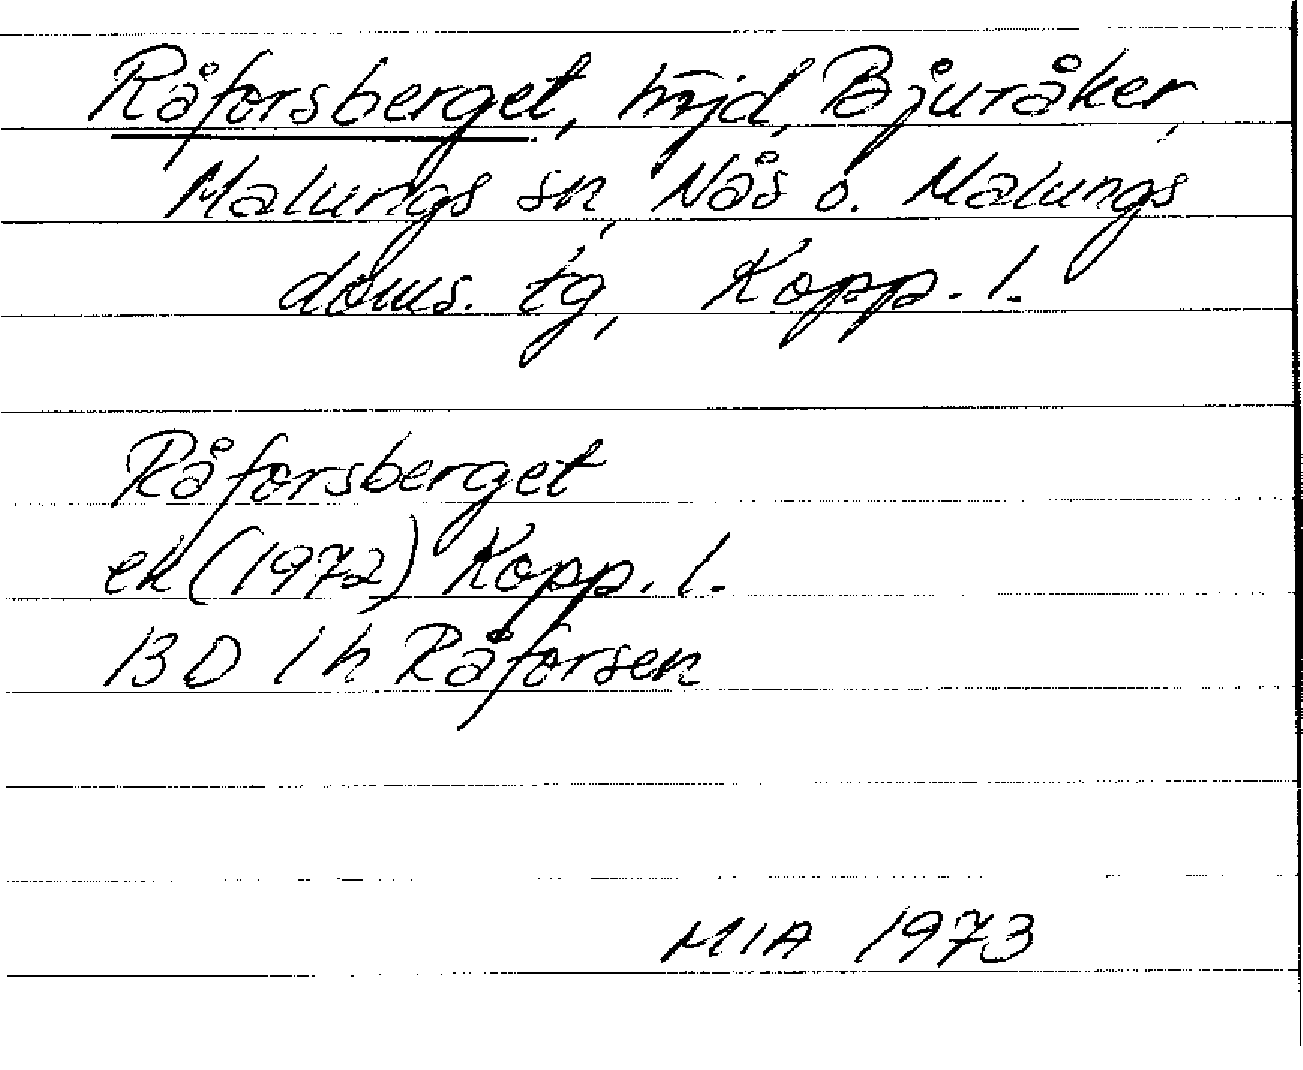 Råforsberget, höjd, Bjuråker,
Malungs sn, Nås o. Malungs
doms. tg, Kopp. l.
Råforsberget
ek (1972) Kopp. l.
13 D 1 h Råforsen
MIA 1973